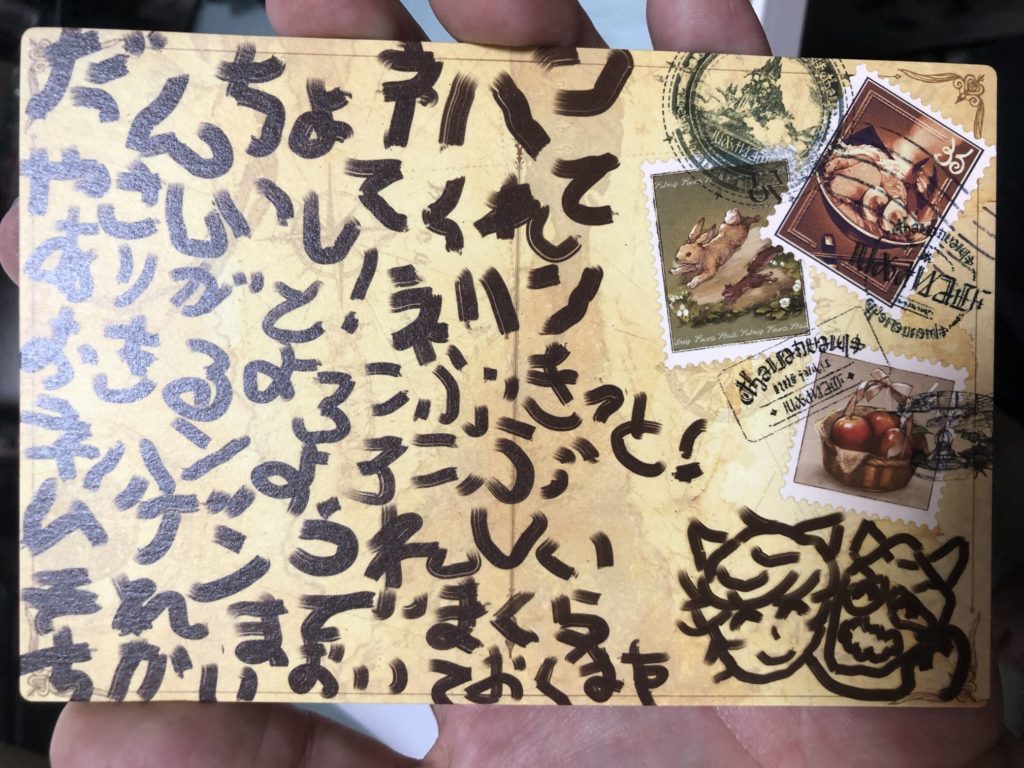 だんちょ ネハン
やさしいしてくれて
ありがと!ネハン
おきるとよろこぶ きっと!
ネハンよろこぶ
ムゲンもうれしい
それまで まくら
ちかいおいておくます